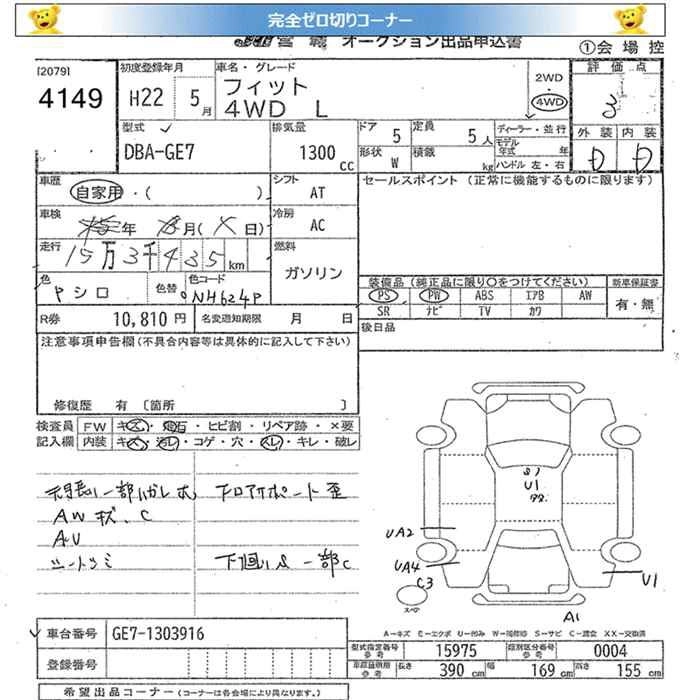 完全ゼロ切りコーナー
オークション出品申込書
①会場控
[2079]
4149
初度登録年月
H22 5月
車名・グレード
フィット
4WD L
2WD
・
4WD
評価点
3
外装 内装
D D
型式
DBA-GE7
排気量
1300 cc
ドア 5
定員 5人
形状 W
積載 kg
ディーラー・並行
モデル年式 年
ハンドル 左・右
車歴
自家用・( )
シフト
AT
セールスポイント (正常に機能するものに限ります)
車検
年 月( 日)
冷房
AC
走行
15万3千435km
燃料
ガソリン
色
Pシロ
色替
色コード
NH624P
装備品 (純正品に限り○をつけてください)
新車保証書
PS PW ABS エアB AW
SR ナビ TV カワ
有・無
R券 10,810円
名変通知期限 月 日
後日品
注意事項申告欄(不具合内容等は具体的に記入して下さい)
修復歴 有 〔箇所 〕
検査員記入欄
FW キズ・飛石・ヒビ割・リペア跡・×要
内装 キズ・汚レ・コゲ・穴・スレ・キレ・破レ
AW キズ、C
下回りS 一部C
S1
U1
UA2
UA4
C3
スペア
U1
A1
A-キズ E-エクボ U-凹み W-補修跡 S-サビ C-腐食 XX-交換済
車台番号 GE7-1303916
登録番号
型式指定番号参考 15975
類別区分番号参考 0004
車検証併用参考 長さ 390 cm 幅 169 cm 高さ 155 cm
希望出品コーナー (コーナーは各会場により異なります。)